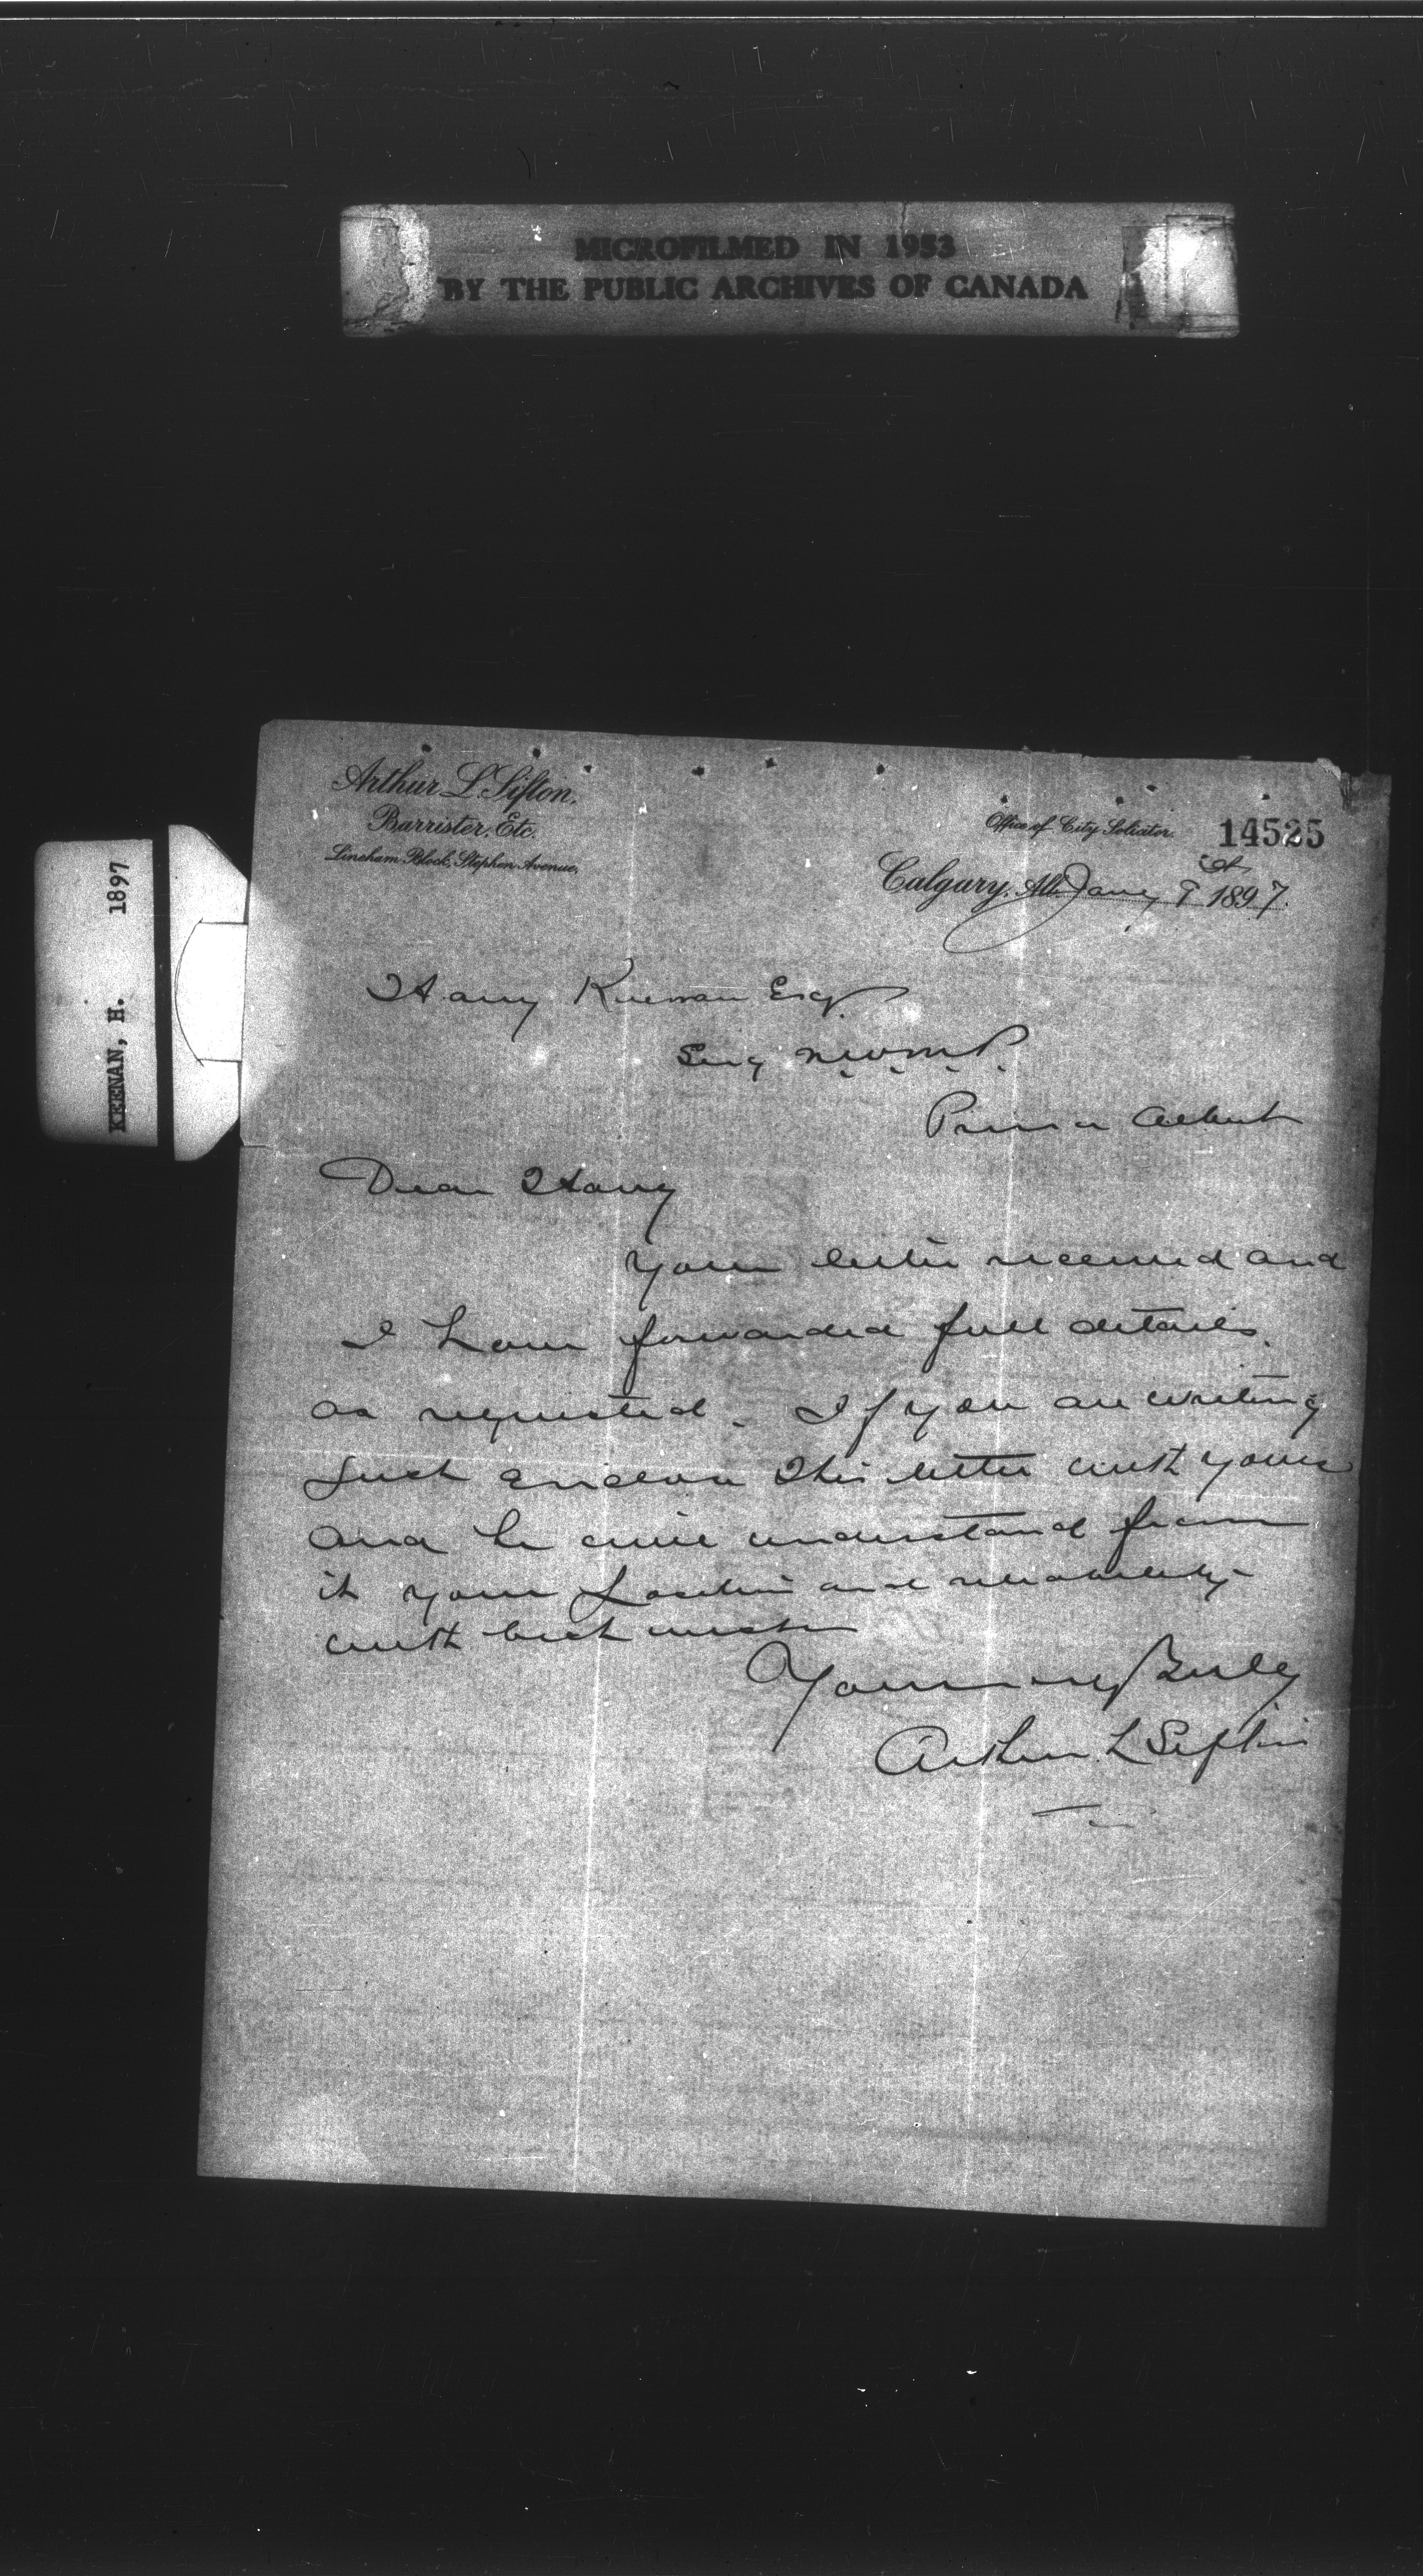 MICROFILMED IN 1953
BY THE PUBLIC ARCHIVES OF CANADA
KEENAN, H. 1897
Arthur L. Sifton,
Barrister, Etc.
Lineham Block, Stephen Avenue,
Office of City Solicitor.
14525
Calgary, Alb. Jany 9 1897.
Harry Keenan Esq
Serg N.W.M.P.
Prince Albert
Dear Harry
Your letter received and
I have forwarded full details
as requested. If you are writing
just enclose this letter with yours
and he will understand from
it your position and reliability
with best wishes
Yours very truly
Arthur L Sifton